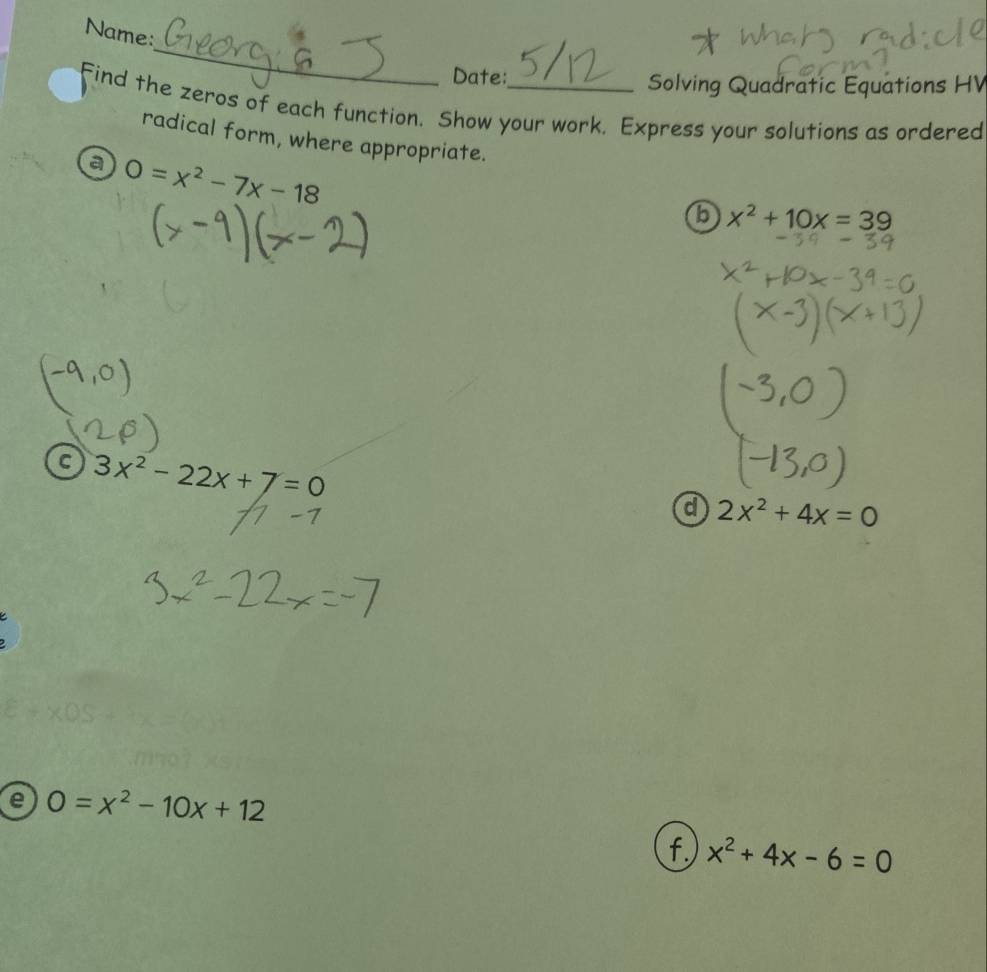 Name: Georgia J
* whats radicle
form?
Date: 5/12
Solving Quadratic Equations HW
Find the zeros of each function. Show your work. Express your solutions as ordered
radical form, where appropriate.
a 0 = x² - 7x - 18
(x-9)(x-2)
(-9,0)
(2,0)
b x² + 10x = 39
-39 -39
x²+10x-39=0
(x-3)(x+13)
(-3,0)
(-13,0)
c 3x² - 22x + 7 = 0
-7 -7
3x²-22x=-7
d 2x² + 4x = 0
e 0 = x² - 10x + 12
f. x² + 4x - 6 = 0